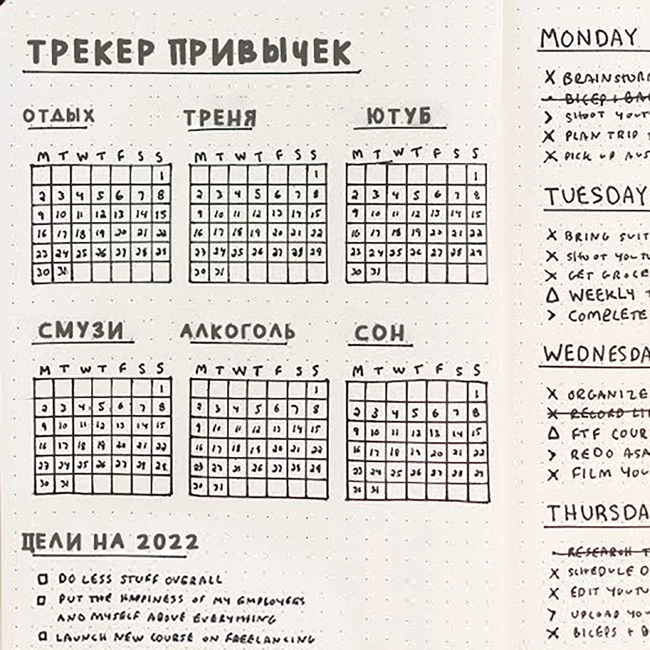 ТРЕКЕР ПРИВЫЧЕК
ОТДЫХ
M T W T F S S
1
2 3 4 5 6 7 8
9 10 11 12 13 14 15
16 17 18 19 20 21 22
23 24 25 26 27 28 29
30 31
ТРЕНЯ
M T W T F S S
1
2 3 4 5 6 7 8
9 10 11 12 13 14 15
16 17 18 19 20 21 22
23 24 25 26 27 28 29
30 31
ЮТУБ
M T W T F S S
1
2 3 4 5 6 7 8
9 10 11 12 13 14 15
16 17 18 19 20 21 22
23 24 25 26 27 28 29
30 31
СМУЗИ
M T W T F S S
1
2 3 4 5 6 7 8
9 10 11 12 13 14 15
16 17 18 19 20 21 22
23 24 25 26 27 28 29
30 31
АЛКОГОЛЬ
M T W T F S S
1
2 3 4 5 6 7 8
9 10 11 12 13 14 15
16 17 18 19 20 21 22
23 24 25 26 27 28 29
30 31
СОН
M T W T F S S
1
2 3 4 5 6 7 8
9 10 11 12 13 14 15
16 17 18 19 20 21 22
23 24 25 26 27 28 29
30 31
ЦЕЛИ НА 2022
DO LESS STUFF OVERALL
PUT THE HAPPINESS OF MY EMPLOYEES
AND MYSELF ABOVE EVERYTHING
LAUNCH NEW COURSE ON FREELANCING
MONDAY
X BRAINSTOR
BICEP + BA
> SHOOT YOUT
X PLAN TRIP
X PICK UP AUS
TUESDAY
X BRING SUIT
X SHOOT YOUT
X GET GROCE
Δ WEEKLY
> COMPLETE
WEDNESDA
X ORGANIZE
X RECORD
Δ FTF COUR
> REDO ASA
X FILM YOU
THURSDA
RESEARCH
X SCHEDULE
X EDIT YOUTU
> UPLOAD YOU
X BICEPS + B